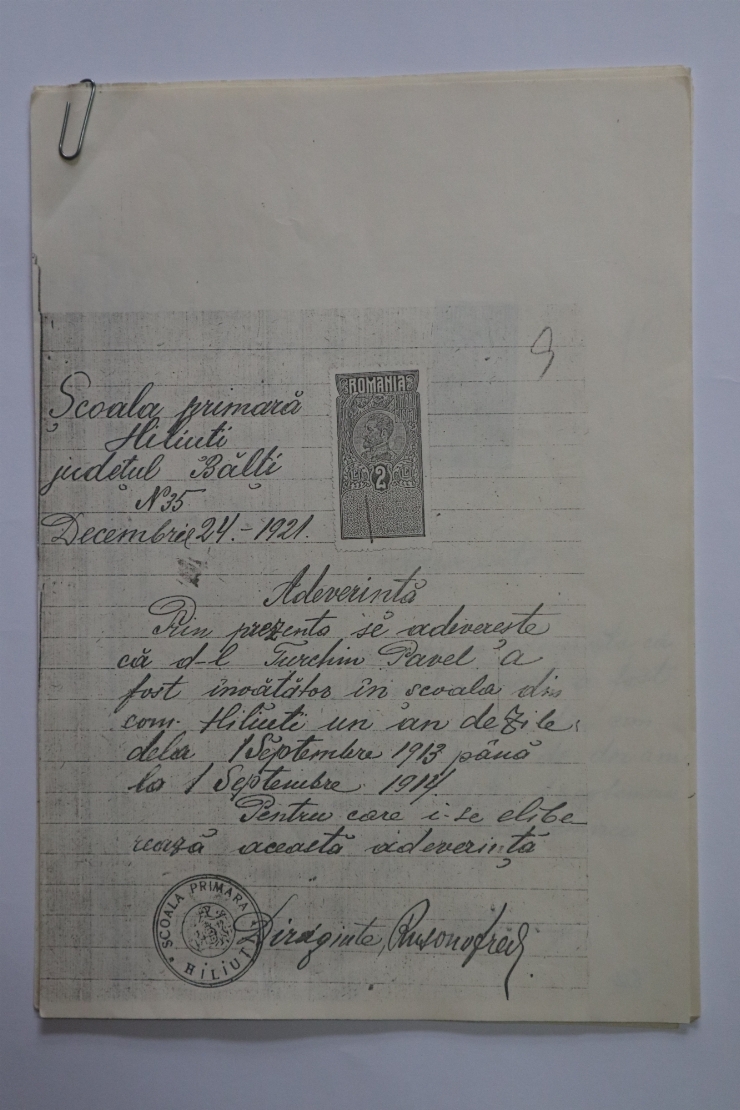 9
ROMANIA
2
Școala primară
Hiliuti
județul Bălți
N35
Decembrie 24.-1921.
Adeverință
Prin prezenta se adeverește
că d-l Turchin Pavel a
fost învătător în scoala din
com. Hiliuti un an de zile
dela 1 Septembre 1913 până
la 1 Septembre 1914.
Pentru care i-se elibe
rează această adeverință
ȘCOALA PRIMARA
HILIUȚI
Diriginte,